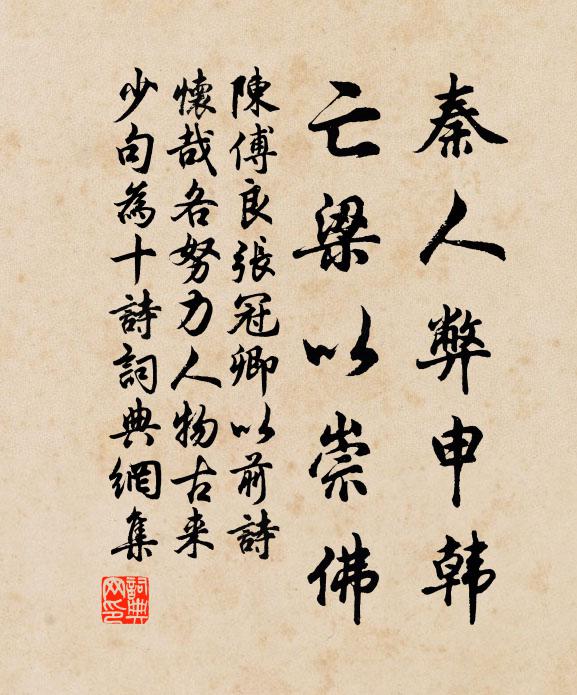 秦人弊申韩
亡梁以崇佛
陳傅良張冠卿以前詩
懷哉各努力人物古来
少句為十詩詞典網集
詞典
网印